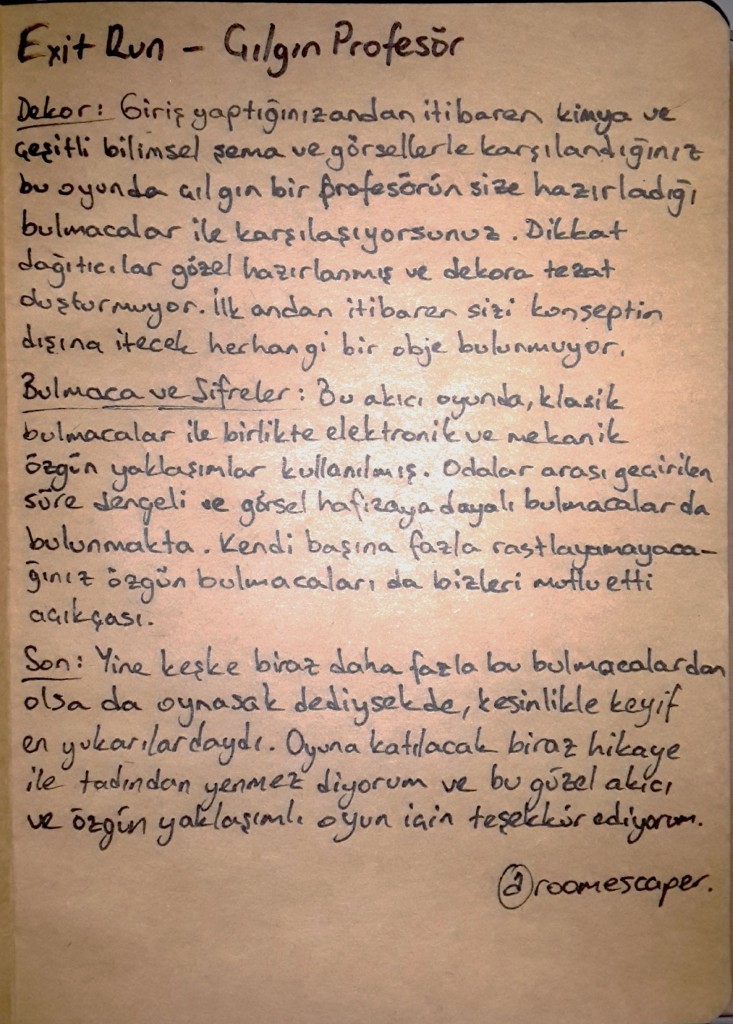 Exit Run - Çılgın Profesör
Dekor: Giriş yaptığınız andan itibaren kimya ve
çeşitli bilimsel şema ve görsellerle karşılandığınız
bu oyunda çılgın bir profesörün size hazırladığı
bulmacalar ile karşılaşıyorsunuz. Dikkat
dağıtıcılar güzel hazırlanmış ve dekora tezat
duşturmuyor. İlk andan itibaren sizi konseptin
dışına itecek herhangi bir obje bulunmuyor.
Bulmaca ve Şifreler: Bu akıcı oyunda, klasik
bulmacalar ile birlikte elektronik ve mekanik
özgün yaklaşımlar kullanılmış. Odalar arası geçirilen
süre dengeli ve görsel hafızaya dayalı bulmacalar da
bulunmakta. Kendi başına fazla rastlayamayaca-
ğınız özgün bulmacaları da bizleri mutlu etti
açıkçası.
Son: Yine keşke biraz daha fazla bu bulmacalardan
olsa da oynasak dediysek de, kesinlikle keyif
en yukarılardaydı. Oyuna katılacak biraz hikaye
ile tadından yenmez diyorum ve bu güzel akıcı
ve özgün yaklaşımlı oyun için teşekkür ediyorum.
@roomescaper.